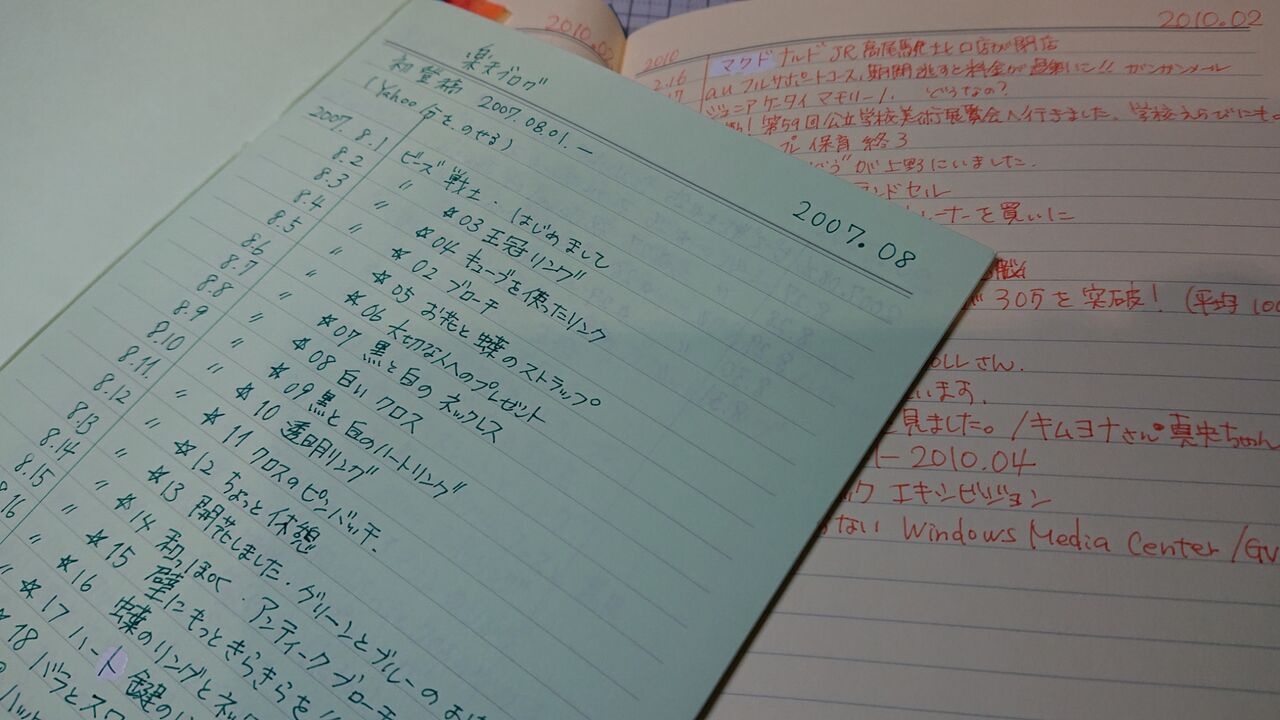 楽天ブログ
初登稿 2007.08.01.ー
(Yahoo 分を、のせる)
2007.08
2007. 8.1 ビーズ戦士. はじめまして
8.2 〃 ☆03 王冠リング
8.3 〃 ☆04 キューブを使ったリング
8.4 〃 ☆02 ブローチ
8.5 〃 ☆05 お花と蝶のストラップ
8.6 〃 ☆06 大切な人へのプレゼント
8.7 〃 ☆07 黒と白のネックレス
8.8 〃 ☆08 白いクロス
8.9 〃 ☆09 黒と白のハートリング
8.10 〃 ☆10 透明リング
8.11. 〃 ☆11 クロスのピンバッチ.
8.12 〃 ☆12 ちょっと休憩
8.13 〃 ☆13 開花しました. グリーンとブルーの
8.14 〃 ☆14 和っぽく. アンティークブローチ
8.15 〃 ☆15 壁にもっときらきらを!!
8.16 〃 ☆16 蝶のリングとネック
〃 ☆17 ハート 鍵の
☆18 バラとス
2010.02
2010.02
2010
2.16 マクドナルド JR高尾駅 店が閉店
17 au フルサポートコース、期間 逃すと料金が !! ガンガンメール
ジュニアケータイ マモリーノ. どうなの?
! 第59回公立学校美術展覧会へ行きました. 学校えらびにも
プレ保育 終3
が上野にいました.
ンドセル
レーナーを買いに
30万を突破! (平均 100
OLLさん.
います.
見ました。/キムヨナさん・真央ちゃん
ー 2010.04
ック エキシビジョン
ない Windows Media Center /GV